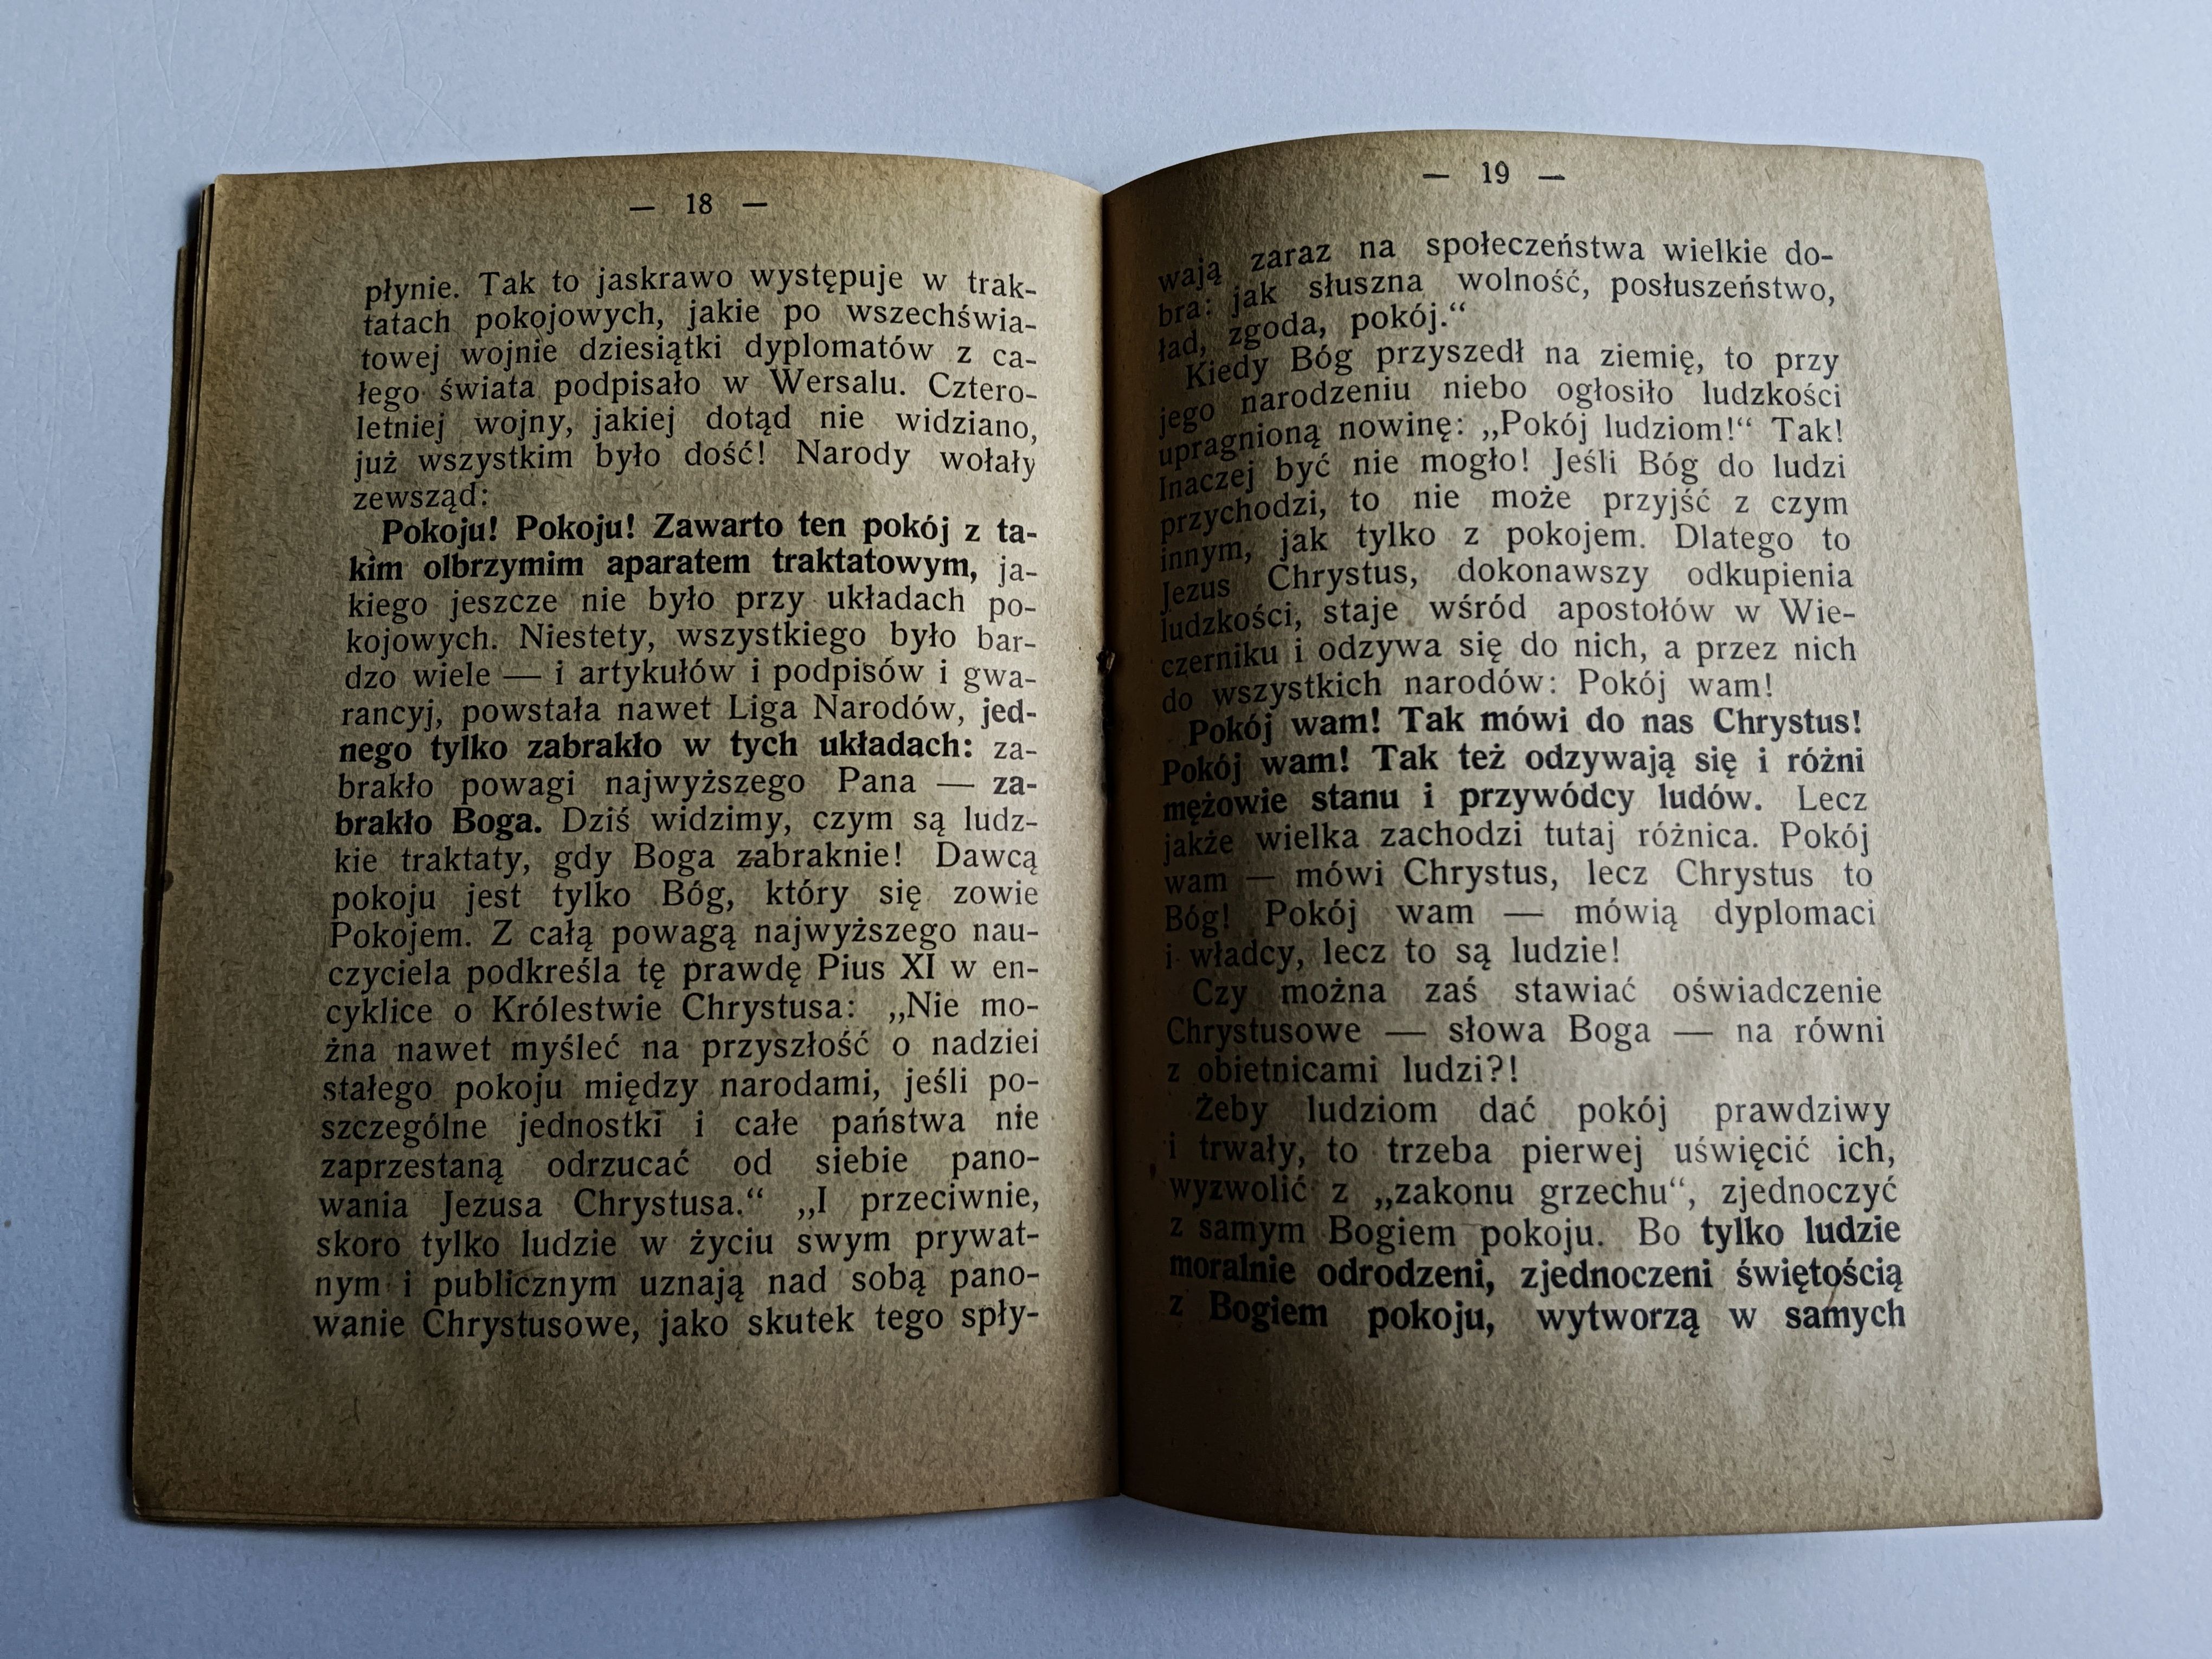 — 18 —
płynie. Tak to jaskrawo występuje w trak-
tatach pokojowych, jakie po wszechświa-
towej wojnie dziesiątki dyplomatów z ca-
łego świata podpisało w Wersalu. Cztero-
letniej wojny, jakiej dotąd nie widziano,
już wszystkim było dość! Narody wołały
zewsząd:
Pokoju! Pokoju! Zawarto ten pokój z ta-
kim olbrzymim aparatem traktatowym, ja-
kiego jeszcze nie było przy układach po-
kojowych. Niestety, wszystkiego było bar-
dzo wiele — i artykułów i podpisów i gwa-
rancyj, powstała nawet Liga Narodów, jed-
nego tylko zabrakło w tych układach: za-
brakło powagi najwyższego Pana — za-
brakło Boga. Dziś widzimy, czym są ludz-
kie traktaty, gdy Boga zabraknie! Dawcą
pokoju jest tylko Bóg, który się zowie
Pokojem. Z całą powagą najwyższego nau-
czyciela podkreśla tę prawdę Pius XI w en-
cyklice o Królestwie Chrystusa: „Nie mo-
żna nawet myśleć na przyszłość o nadziei
stałego pokoju między narodami, jeśli po-
szczególne jednostki i całe państwa nie
zaprzestaną odrzucać od siebie pano-
wania Jezusa Chrystusa.“ „I przeciwnie,
skoro tylko ludzie w życiu swym prywat-
nym i publicznym uznają nad sobą pano-
wanie Chrystusowe, jako skutek tego spły-
— 19 —
wają zaraz na społeczeństwa wielkie do-
bra: jak słuszna wolność, posłuszeństwo,
ład, zgoda, pokój.“
Kiedy Bóg przyszedł na ziemię, to przy
jego narodzeniu niebo ogłosiło ludzkości
upragnioną nowinę: „Pokój ludziom!“ Tak!
Inaczej być nie mogło! Jeśli Bóg do ludzi
przychodzi, to nie może przyjść z czym
innym, jak tylko z pokojem. Dlatego to
Jezus Chrystus, dokonawszy odkupienia
ludzkości, staje wśród apostołów w Wie-
czerniku i odzywa się do nich, a przez nich
do wszystkich narodów: Pokój wam!
Pokój wam! Tak mówi do nas Chrystus!
Pokój wam! Tak też odzywają się i różni
mężowie stanu i przywódcy ludów. Lecz
jakże wielka zachodzi tutaj różnica. Pokój
wam — mówi Chrystus, lecz Chrystus to
Bóg! Pokój wam — mówią dyplomaci
i władcy, lecz to są ludzie!
Czy można zaś stawiać oświadczenie
Chrystusowe — słowa Boga — na równi
z obietnicami ludzi?!
Żeby ludziom dać pokój prawdziwy
i trwały, to trzeba pierwej uświęcić ich,
wyzwolić z „zakonu grzechu“, zjednoczyć
z samym Bogiem pokoju. Bo tylko ludzie
moralnie odrodzeni, zjednoczeni świętością
z Bogiem pokoju, wytworzą w samych